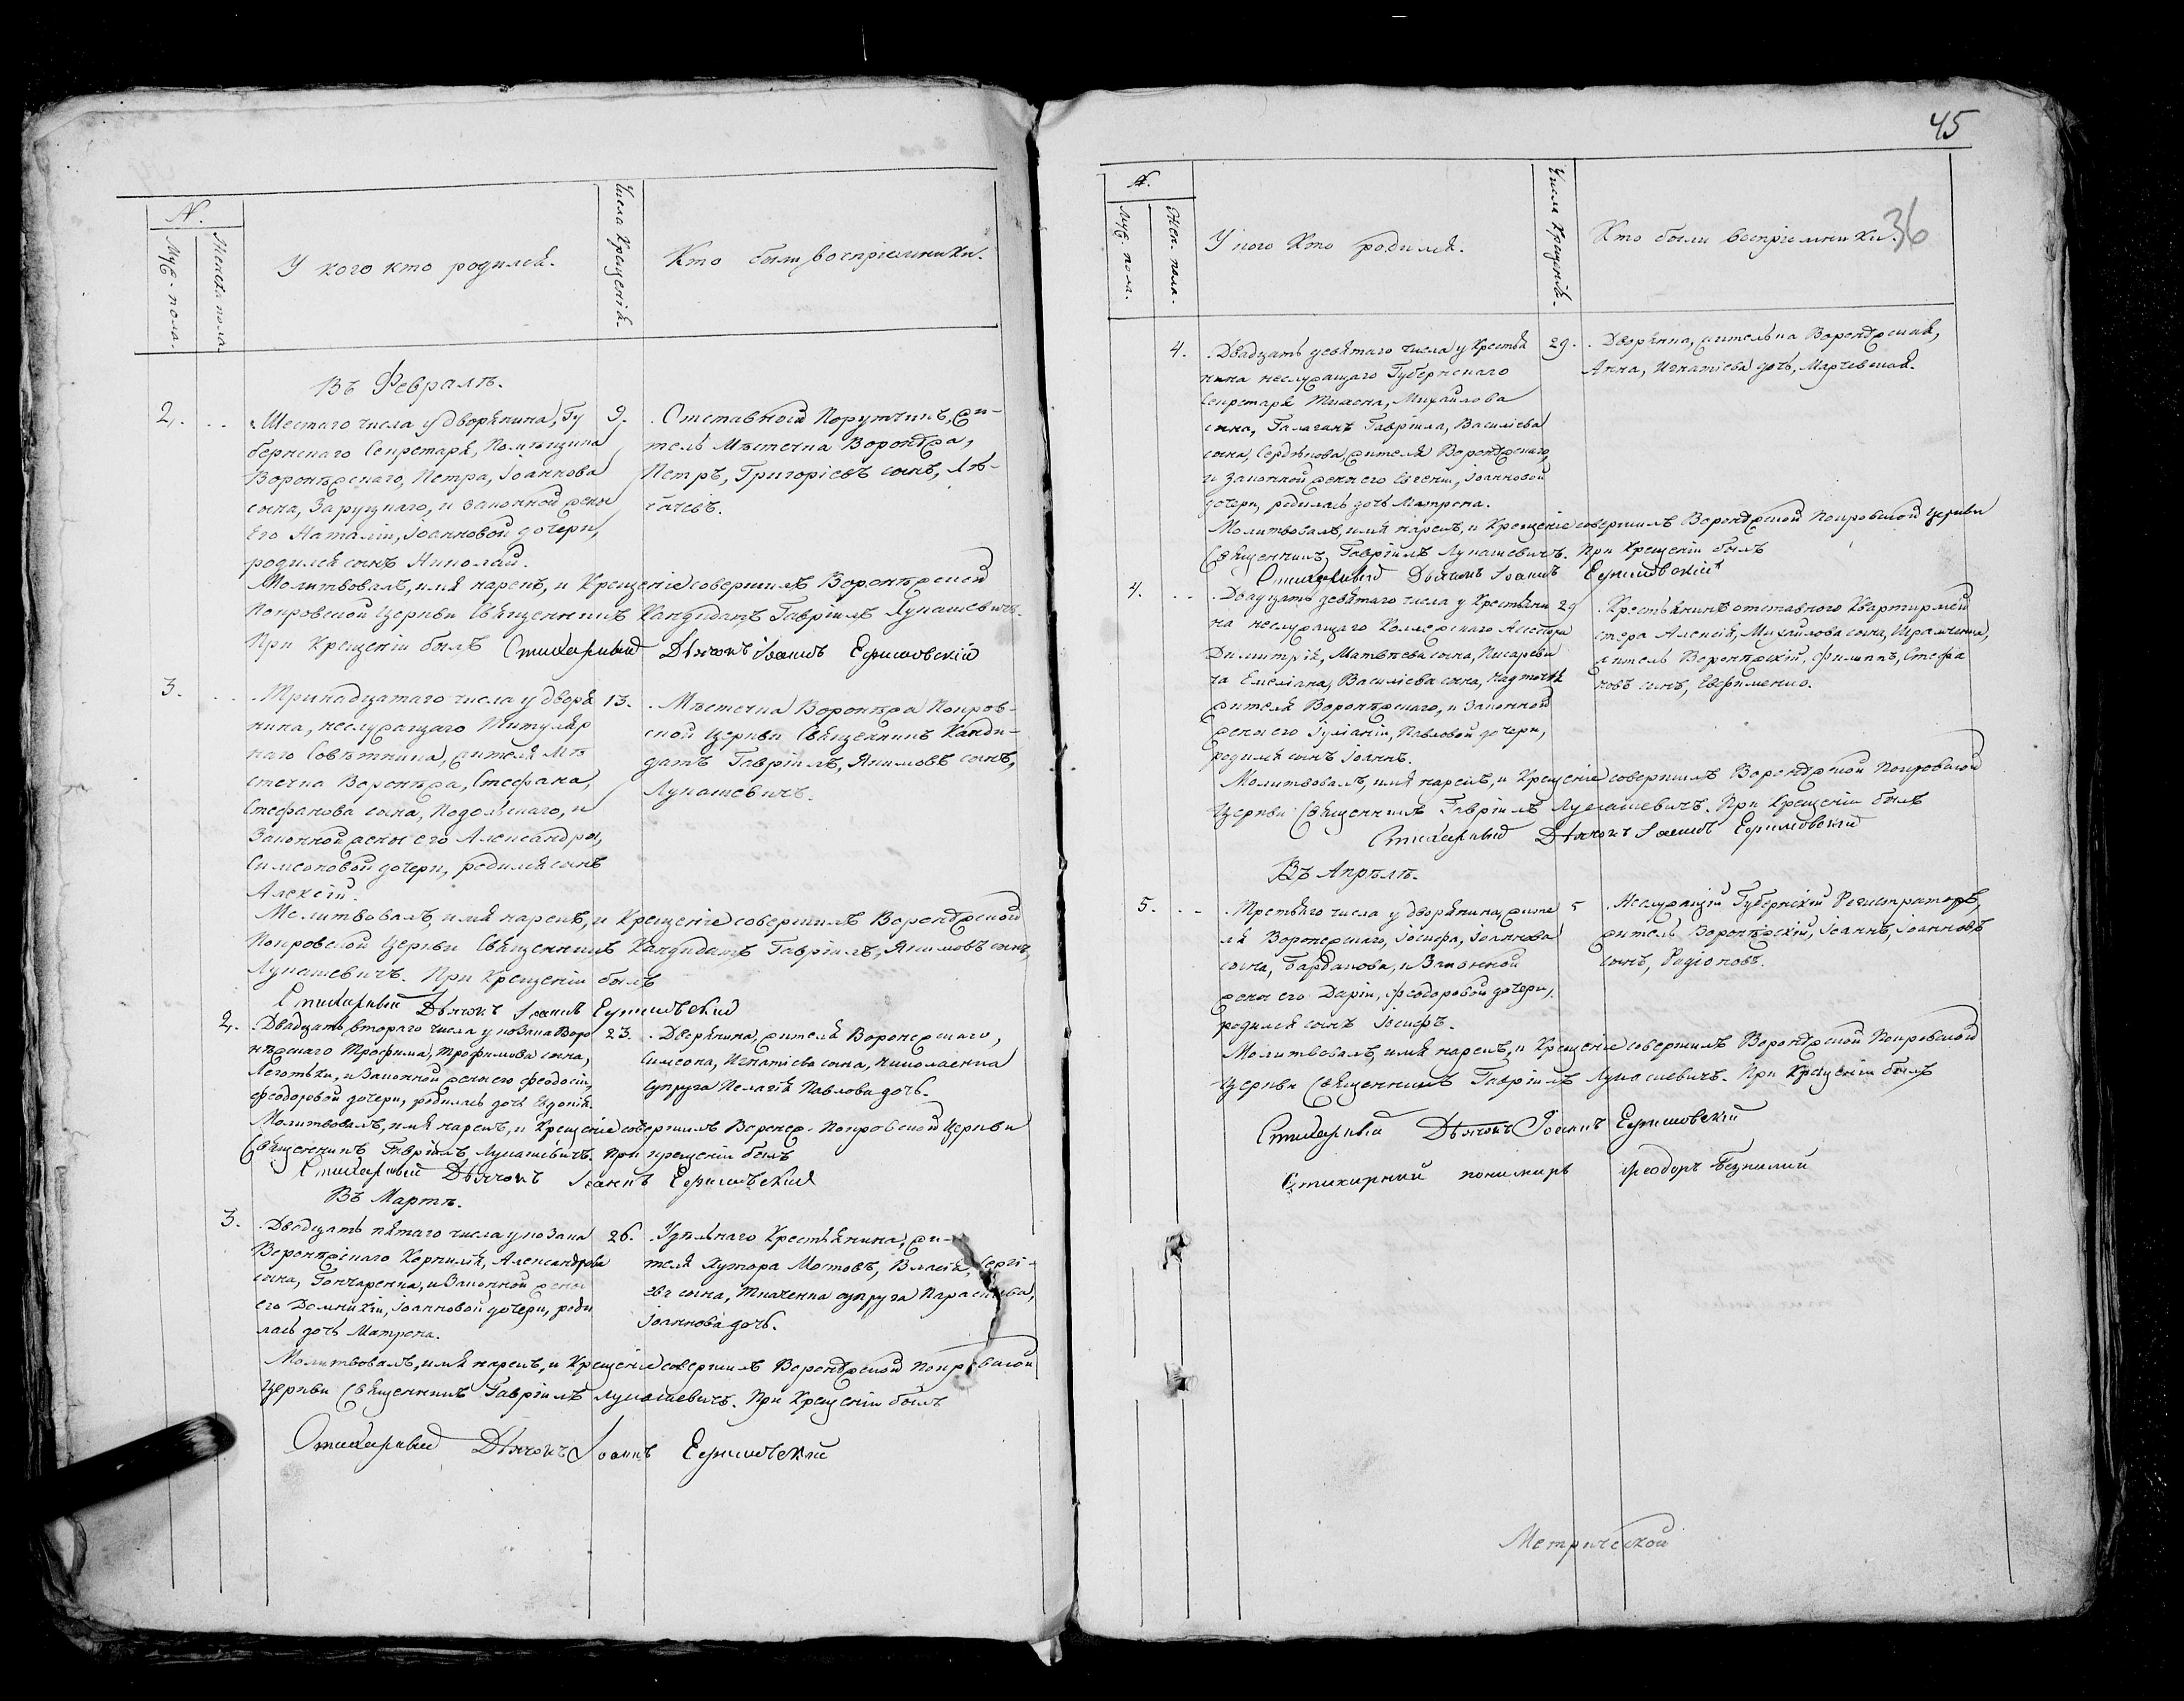 N.
Муж. пола.
Женска пола.
У кого кто родился.
Числа Крещенія.
Кто были воспріемники.
Въ Февралѣ.
2. Шестаго числа у дворянина, Гу
бернскаго Секретаря, Помѣщика
Воронѣжскаго, Петра, Іоаннова
сына, Заруцкаго, и законной жены
Его Наталіи, Іоанновой дочери,
родился сынъ Николай.
9. Отставной Порутчикъ, жи-
тель Мѣстечка Воронѣжа,
Петръ, Григоріевъ сынъ,
Молитвовалъ, имя нарекъ, и Крещеніе совершилъ Воронѣжской
Покровской Церкви Священникъ Кандидатъ Гавріилъ Лукашевичъ.
При Крещеніи былъ Стихарный Дьячокъ Іоаннъ Ефимовскій
3. Тринадцатаго числа у дворя
нина, неслужащаго Титуляр
наго Совѣтника, жителя Мѣ
стечка Воронѣжа, Стефана,
Стефанова сына, Подольскаго, и
Законной жены его Александры,
Симеоновой дочери, родился сынъ
Алексій.
13. Мѣстечка Воронѣжа Покров-
ской Церкви Священникъ Канди-
датъ Гавріилъ, Якимовъ сынъ,
Лукашевичъ.
Молитвовалъ, имя нарекъ, и Крещеніе совершилъ Воронѣжской
Покровской Церкви Священникъ Кандидатъ Гавріилъ, Якимовъ сынъ,
Лукашевичъ. При Крещеніи былъ
Стихарный Дьячокъ Іоаннъ Ефимовскій
2. Двадцать втораго числа у козака Воро
нѣжскаго Трофима, Трофимова сына,
и Законной жены его Феодосіи,
Феодоровой дочери, родилась дочь
23. Дворянина, жителя Воронежскаго,
Симеона, Игнатіева сына, Николаенка
супруга Пелагія Павлова дочь.
Молитвовалъ, имя нарекъ, и Крещеніе совершилъ Воронеж. Покровской Церкви
Священникъ Гавріилъ Лукашевичъ. При крещеніи былъ
Стихарный Дьячокъ Іоаннъ Ефимовскій
Въ Мартѣ.
3. Двадцать пятаго числа у козака
Воронѣжскаго Корнилія, Александрова
сына, Гончаренка, и Законной жены
его Домникіи, Іоанновой дочери, роди
лась дочь Матрона.
26. Удѣльнаго Крестьянина, жи-
теля Хутора Мостовъ, Власія, Сергі-
ева сына, Ткаченка супруга Параскева,
Іоаннова дочь.
Молитвовалъ, имя нарекъ, и Крещеніе совершилъ Воронѣжской Покровской
Церкви Священникъ Гавріилъ Лукашевичъ. При Крещеніи былъ
Стихарный Дьячокъ Іоаннъ Ефимовскій
45
36
N.
Муж. пола.
Жен. пола.
У кого Кто родился.
Числа Крещенія.
Кто были воспріемники.
4. Двадцать девятаго числа у Крестья
нина неслужащаго Губернскаго
Секретаря Михайлова
сына, Галаган Гавріила, Василіева
сына, Сердюкова, жителя Воронѣжскаго,
и Законной жены его Евгеніи, Іоанновой
дочери, родилась дочь Матрона.
29. Дворянка, жителька Воронѣжская,
Анна, Игнатіева дочь, Марчевская.
Молитвовалъ, имя нарекъ, и Крещеніе совершилъ Воронѣжской Покровской Церкви
Священникъ Гавріилъ Лукашевичъ. При Крещеніи былъ
Стихарный Дьячокъ Іоаннъ Ефимовскій
4. Двадцать девятаго числа у Крестьяни
на неслужащаго Коллежскаго Ассесора
Димитрія, Матвѣева сына, Писареви
ча Емеліана, Василіева сына,
жителя Воронѣжскаго, и Законной
жены его Іуліаніи, Павловой дочери,
родился сынъ Іоаннъ.
29. Крестьянинъ отставного Квартирмей
стера Алексія, Михайлова сына,
житель Воронѣжскій, Филиппъ, Стефа
новъ сынъ, Евфименко.
Молитвовалъ, имя нарекъ, и Крещеніе совершилъ Воронѣжской Покровской
Церкви Священникъ Гавріилъ Лукашевичъ. При Крещеніи былъ
Стихарный Дьячокъ Іоаннъ Ефимовскій
Въ Апрѣлѣ.
5. Третьяго числа у дворянина, жите
ля Воронежскаго, Іосифа, Іоаннова
сына, Бардакова, и Законной
жены его Даріи, Феодоровой дочери,
родился сынъ Іосифъ.
5 Неслужащій Губернскій Регистраторъ,
житель Воронѣжскій, Іоаннъ, Іоанновъ
сынъ, Родіоновъ.
Молитвовалъ, имя нарекъ, и Крещеніе совершилъ Воронѣжской Покровской
Церкви Священникъ Гавріилъ Лукашевичъ. При Крещеніи былъ
Стихарный Дьячокъ Іоаннъ Ефимовскій
Стихирний пономаръ Феодоръ
Метрической